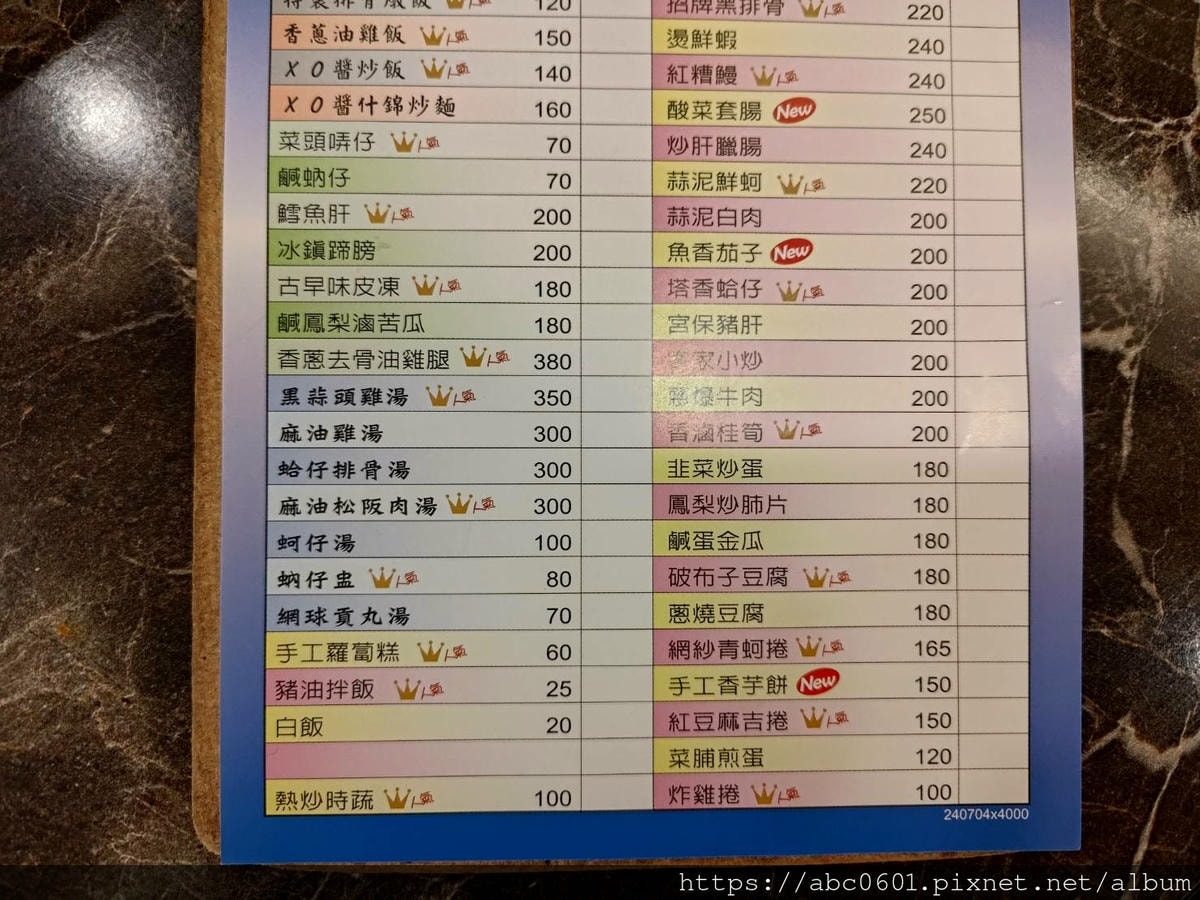 特製排骨燉飯 人氣 120
香蔥油雞飯 人氣 150
XO醬炒飯 人氣 140
XO醬什錦炒麵 160
菜頭哢仔 人氣 70
鹹蚋仔 70
鱈魚肝 人氣 200
冰鎮蹄膀 200
古早味皮凍 人氣 180
鹹鳳梨滷苦瓜 180
香蔥去骨油雞腿 人氣 380
黑蒜頭雞湯 人氣 350
麻油雞湯 300
蛤仔排骨湯 300
麻油松阪肉湯 人氣 300
蚵仔湯 100
蚋仔盅 人氣 80
網球貢丸湯 70
手工蘿蔔糕 人氣 60
豬油拌飯 人氣 25
白飯 20
熱炒時蔬 人氣 100
招牌黑排骨 人氣 220
燙鮮蝦 240
紅糟鰻 人氣 240
酸菜套腸 New 250
炒肝臘腸 240
蒜泥鮮蚵 人氣 220
蒜泥白肉 200
魚香茄子 New 200
塔香蛤仔 人氣 200
宮保豬肝 200
客家小炒 200
蔥爆牛肉 200
香滷桂筍 人氣 200
韭菜炒蛋 180
鳳梨炒肺片 180
鹹蛋金瓜 180
破布子豆腐 人氣 180
蔥燒豆腐 180
網紗青蚵捲 人氣 165
手工香芋餅 New 150
紅豆麻吉捲 人氣 150
菜脯煎蛋 120
炸雞捲 人氣 100
240704x4000
https://abc0601.pixnet.net/album